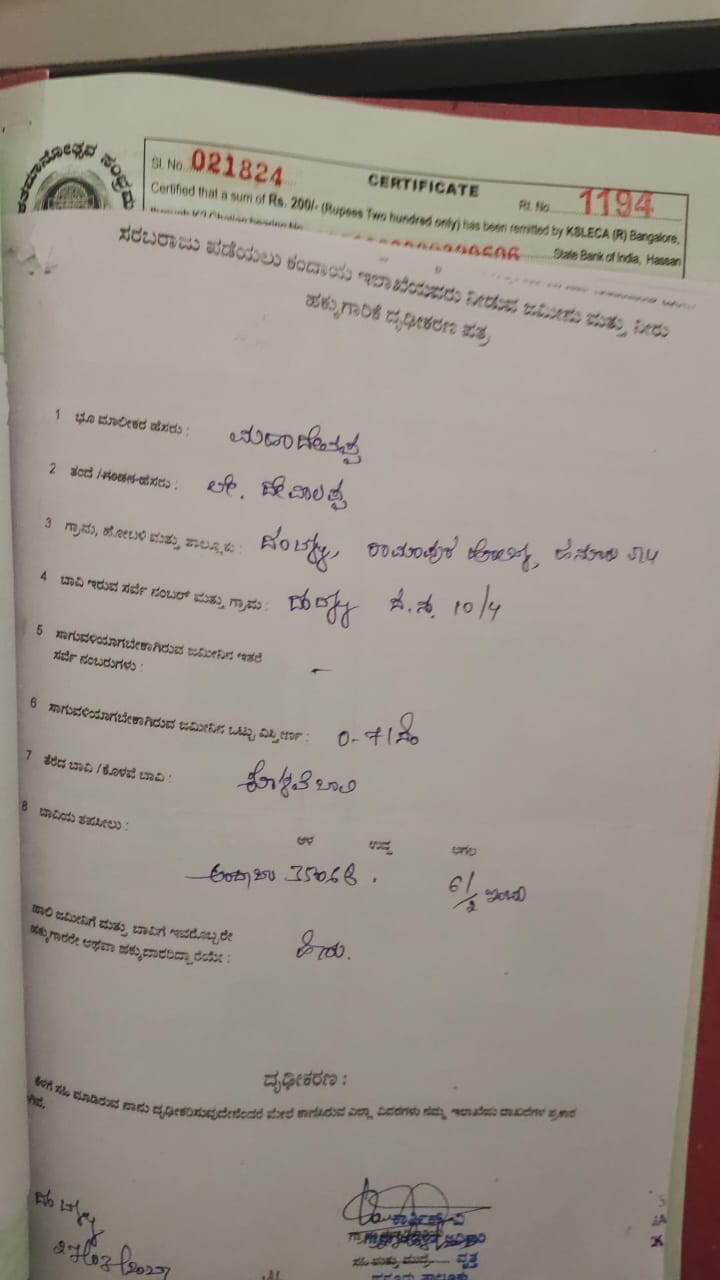 ಶತಮಾನೋತ್ಸವ ಸಂಭ್ರಮ
Sl. No. 021824 CERTIFICATE Rt. No. 1194
Certified that a sum of Rs. 200/- (Rupees Two hundred only) has been remitted by KSLECA (R) Bangalore,
State Bank of India, Hassan
ಸರಬರಾಜು ಪಡೆಯಲು ಕಂದಾಯ ಇಲಾಖೆಯವರು ನೀಡುವ ಜಮೀನು ಮತ್ತು ನೀರು
ಹಕ್ಕುಗಾರಿಕೆ ದೃಢೀಕರಣ ಪತ್ರ
1 ಭೂ ಮಾಲೀಕರ ಹೆಸರು : ಮಹಾದೇವಪ್ಪ
2 ತಂದೆ /ಗಂಡನ-ಹೆಸರು : ಲೇ.
3 ಗ್ರಾಮ, ಹೋಬಳಿ ಮತ್ತು ತಾಲ್ಲೂಕು : ರಾಮಾಪುರ ಹೋಬಳಿ, ಹನೂರು ತಾ॥
4 ಬಾವಿ ಇರುವ ಸರ್ವೆ ನಂಬರ್ ಮತ್ತು ಗ್ರಾಮ : ಸ.ನಂ. 10/4
5 ಸಾಗುವಳಿಯಾಗಬೇಕಾಗಿರುವ ಜಮೀನಿನ ಇತರೆ
ಸರ್ವೆ ನಂಬರುಗಳು : –
6 ಸಾಗುವಳಿಯಾಗಬೇಕಾಗಿರುವ ಜಮೀನಿನ ಒಟ್ಟು ವಿಸ್ತೀರ್ಣ : 0-71ಸೆಂ
7 ತೆರೆದ ಬಾವಿ / ಕೊಳವೆ ಬಾವಿ : ಕೊಳವೆ ಬಾವಿ
8 ಬಾವಿಯ ತಪಸೀಲು :
ಆಳ ಉದ್ದ ಅಗಲ
ಅಂದಾಜು 350 ಅಡಿ . 6 1/2 ಇಂಚು
ಹಾಲಿ ಜಮೀನಿಗೆ ಮತ್ತು ಬಾವಿಗೆ ಇವರೊಬ್ಬರೇ
ಹಕ್ಕುಗಾರರೇ ಅಥವಾ ಹಕ್ಕುದಾರರಿದ್ದಾರೆಯೇ : ಹೌದು.
ದೃಢೀಕರಣ :
ಕೆಳಗೆ ಸಹಿ ಮಾಡಿರುವ ನಾನು ದೃಢೀಕರಿಸುವುದೇನೆಂದರೆ ಮೇಲೆ ಕಾಣಿಸಿರುವ ಎಲ್ಲಾ ವಿವರಗಳು ನಮ್ಮ ಇಲಾಖೆಯ ದಾಖಲೆಗಳ ಪ್ರಕಾರ
ಸಹಿ ಮತ್ತು ಮುದ್ರೆ ವೃತ್ತ